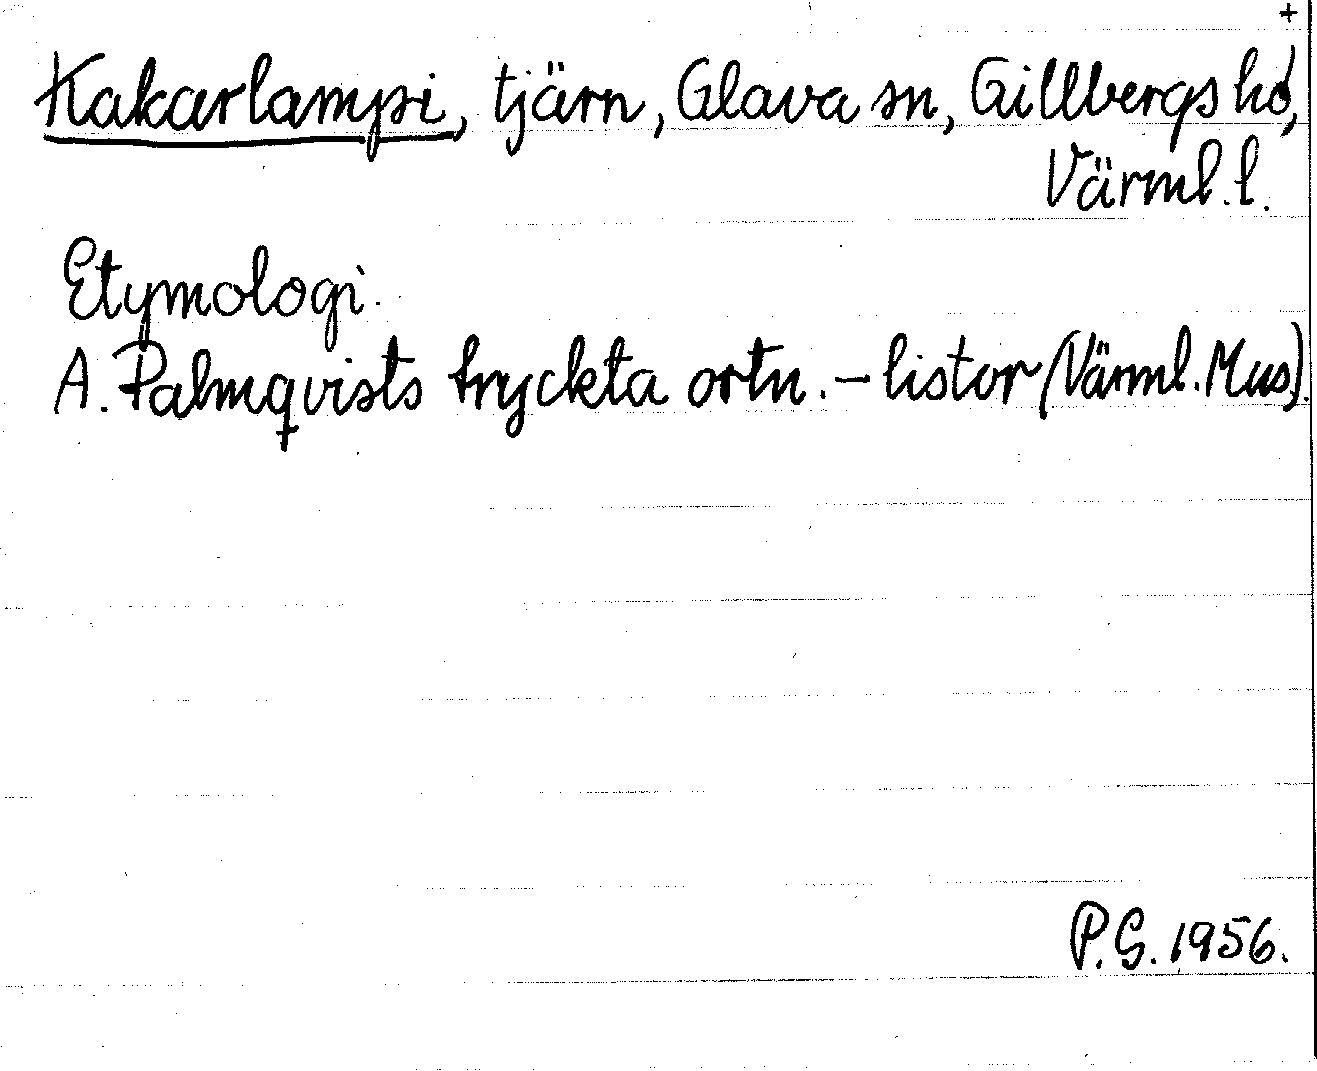 +
Kakarlampi, tjärn, Glava sn, Gillbergs hd,
Värml. l.
Etymologi.
A. Palmqvists tryckta ortn.-listor (Värml. Mus).
P.G. 1956.